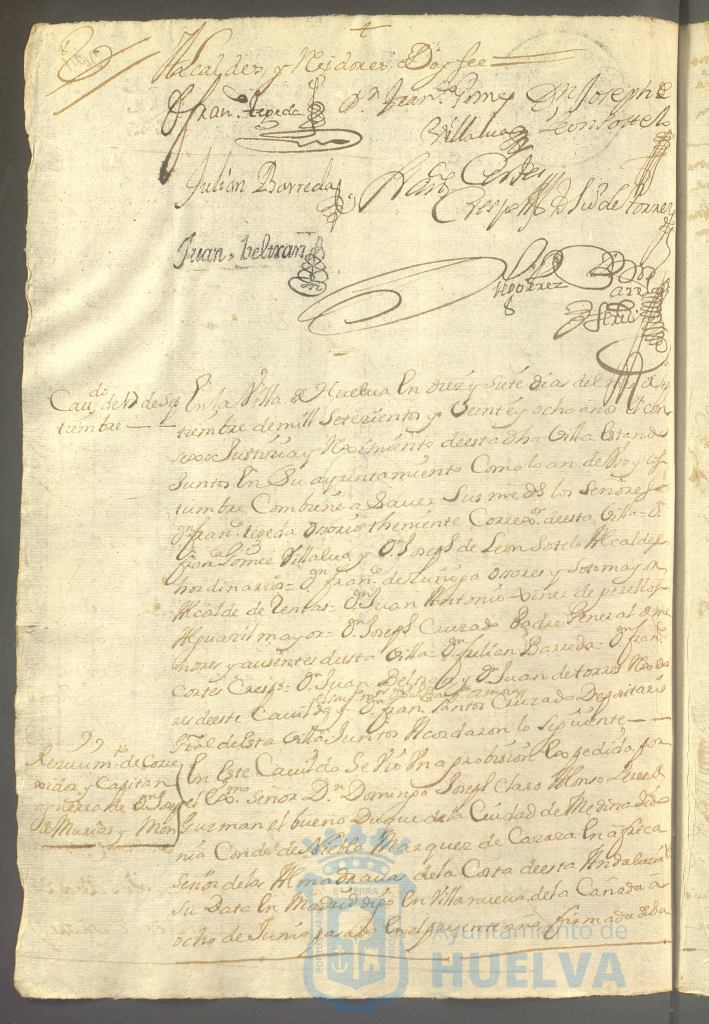 Alcaldes, y Rexidores Doy fee
Fran.co tegeda Dn Fran.co Gomez Dn Joseph de
Villalua Leon Sotelo
Julian Barreda Fran.co Cortes
Crespo D Ju.o de torres
Juan beltran
Cau.do de 17 de Sep
tiembre
En la Villa de Huelua En diez y siete dias del mes de sep
tiembre de mill Setezientos y Veinte y ocho años el con
sexo Justizia y Reximiento de esta dha Villa Estando
Juntos En Su ayuntamiento Como lo an de Uso y cos
tumbre Combiene a Sauer Sus mrds los Señores
Dn Fran.co tegeda Ossorio theniente Correxor de esta Villa = Dn
Fran.co Gomez Villalua y Dn Joseph de Leon Sotelo Alcaldes
hordinarios = Dn Fran.co de Zuñiga Ossores y Sotomayor
Alcalde de Rentas = Dn Juan Antonio Viner de perellos
Alguazil mayor = Dn Joseph Cruzado Padre General de me
nores y ausentes de esta Villa = Dn Julian Barreda = Dn Fran.co
Cortes Crespo = Dn Juan Beltran y Dn Juan de torres Rexido
res de este Cauildo y Dn Fran Santos Cruzado Depositario
Gral de Esta Villa Juntos Acordaron lo siguiente
Rezeuim.to de Corre
xidor y Capitan
a guerra de Dn Jose
de Murias y Mon
En Este Cauildo Se Vio Una probision Expedida por
el Exmo Señor Dn Domingo Joseph Claro Alonso Perez de
Guzman el bueno Duque de la Ciudad de Medina Sido
nia Conde de Niebla Marquez de Cazaza En africa
Señor de las Almadrauas de la Costa de esta Andaluzia
Su Data En Madrid digo En Villanueua de la Cañada a
ocho de Junio pasado En el presente año firmada de su
Ayuntamiento de
HUELVA